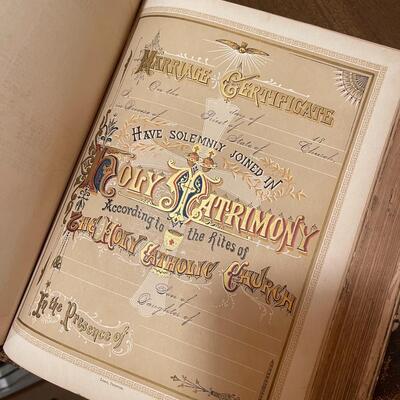 Marriage Certificate
On the day of 18
Diocese of State of Church
I HAVE SOLEMNLY JOINED IN
HOLY MATRIMONY
According to the Rites of
THE HOLY CATHOLIC CHURCH
Son of
& Daughter of
In the Presence of